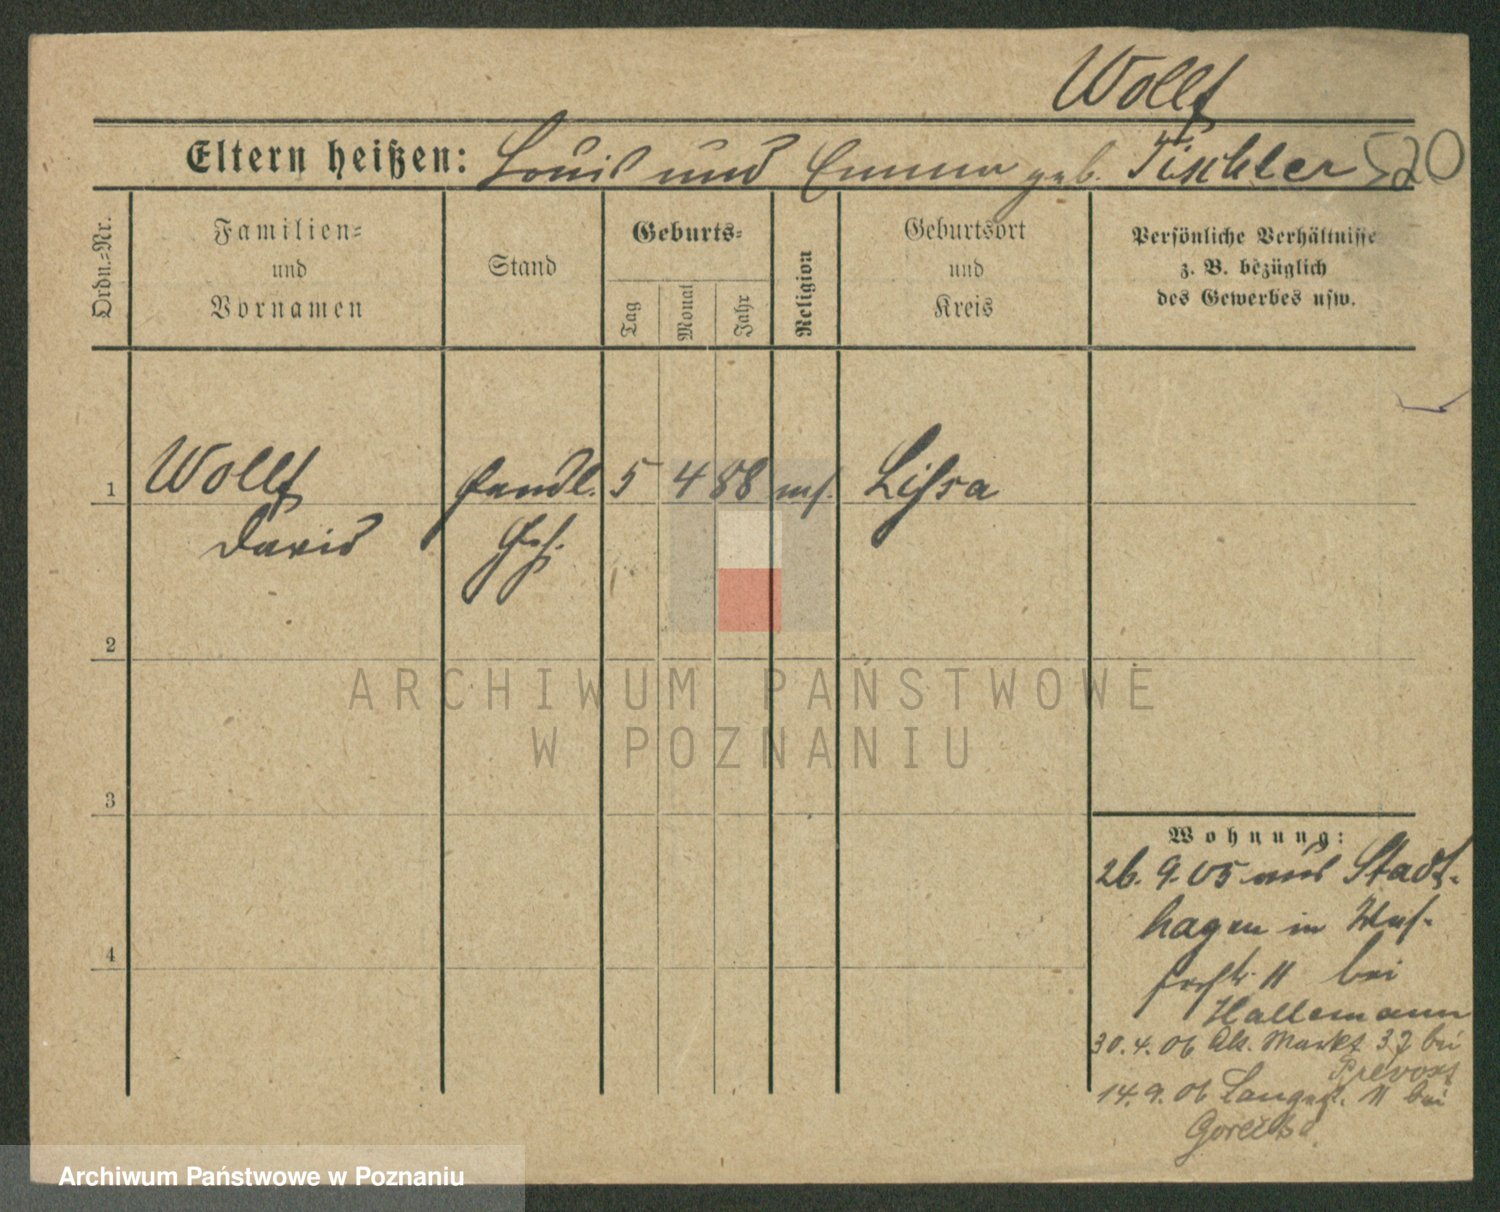 Wolff
Eltern heißen: Louis und Emma geb. Tischler 520
Ordn.-Nr.
Familien-
und
Vornamen
Stand
Geburts-
Tag
Monat
Jahr
Religion
Geburtsort
und
Kreis
Persönliche Verhältnisse
z. B. bezüglich
des Gewerbes usw.
1 Wolff Handl. 5 4 88 mos. Lissa
David Geh.
2
ARCHIWUM PAŃSTWOWE
W POZNANIU
3
Wohnung:
26. 9. 05 aus Stadt-
hagen in
11 bei
Hallemann
4
30. 4. 06 Alt. Markt 37 bei
14. 9. 06 Langestr. 11 bei
Archiwum Państwowe w Poznaniu